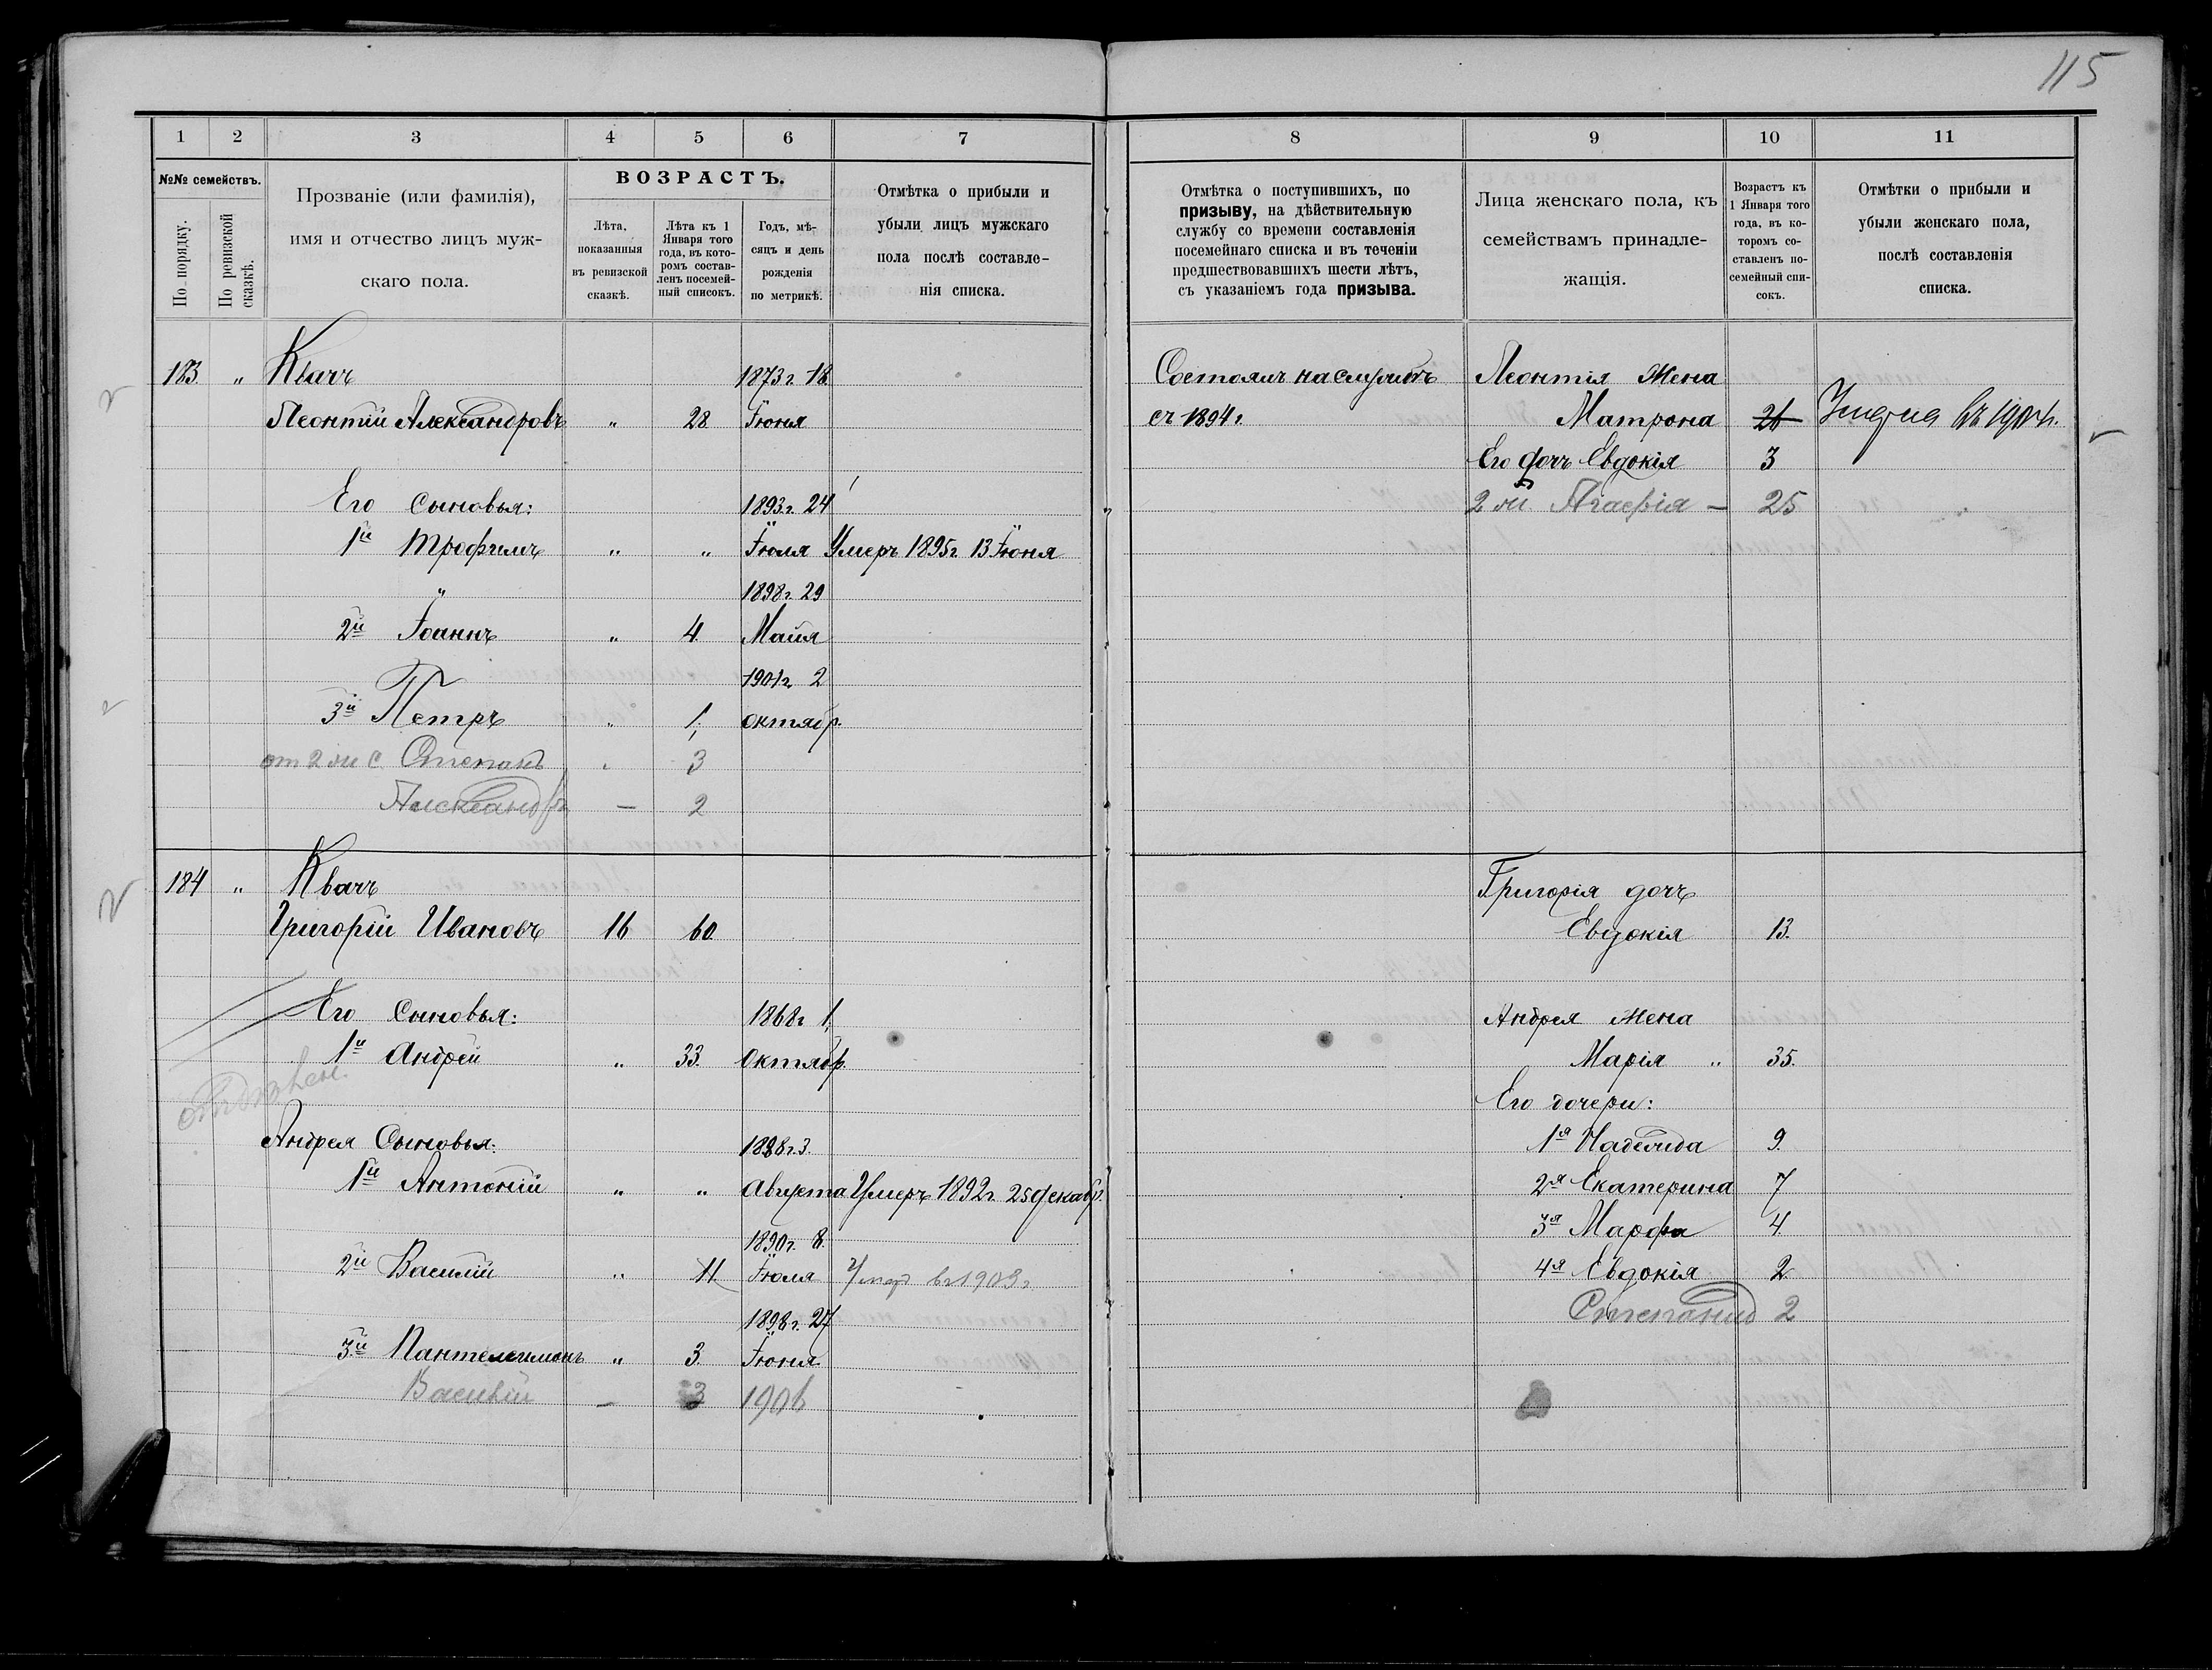 115
1 2 3 4 5 6 7
№№ семействъ.
По порядку.
По ревизской сказкѣ.
Прозваніе (или фамилія),
имя и отчество лицъ муж-
скаго пола.
ВОЗРАСТЪ.
Лѣта,
показанныя
въ ревизской
сказкѣ.
Лѣта къ 1
Января того
года, въ кото-
ромъ состав-
ленъ посемей-
ный списокъ.
Годъ, мѣ-
сяцъ и день
рожденія
по метрикѣ.
Отмѣтка о прибыли и
убыли лицъ мужскаго
пола послѣ составле-
нія списка.
183. " Квачъ 1873 г. 18
Леонтій Александровъ " 28 Іюня
Его сыновья: 1893 г. 24
1й Трофимъ " " Іюля Умеръ 1895 г. 13 Іюня
" 1898 г. 29
2й Іоаннъ " 4. Майя
1901 г. 2
3й Петръ " 1, октябр.
от 2 жи с. Степанъ " 3
Александръ — 2
184 " Квачъ
Григорій Ивановъ 16 60
Его сыновья: 1868 г. 1,
1й Андрей " 33. октябр.
Андрея сыновья: 1888 г. 3.
1й Антоній " " Августа Умеръ 1892 г. 25 декабр.
1890 г. 8.
2й Василій " 11 Іюля Умер в 1903 г.
1898 г. 27
3й Пантелеимонъ " 3. Іюня
Василій — 3 1906
8 9 10 11
Отмѣтка о поступившихъ, по
призыву, на дѣйствительную
службу со времени составленія
посемейнаго списка и въ теченіи
предшествовавшихъ шести лѣтъ,
съ указаніемъ года призыва.
Лица женскаго пола, къ
семействамъ принадле-
жащія.
Возрастъ къ
1 Января того
года, въ ко-
торомъ со-
ставленъ по-
семейный спи-
сокъ.
Отмѣтки о прибыли и
убыли женскаго пола,
послѣ составленія
списка.
Состоялъ на службѣ Леонтія жена
съ 1894 г. Матрона 26 въ 1904 г.
Его дочь Евдокія 3
2 жи. Агафія — 25
Григорія дочь
Евдокія 13.
Андрея жена
Марія " 35.
Его дочери:
1я Надежда 9.
2я Екатерина 7
3я Марфа 4.
4я Евдокія 2
Степанид 2